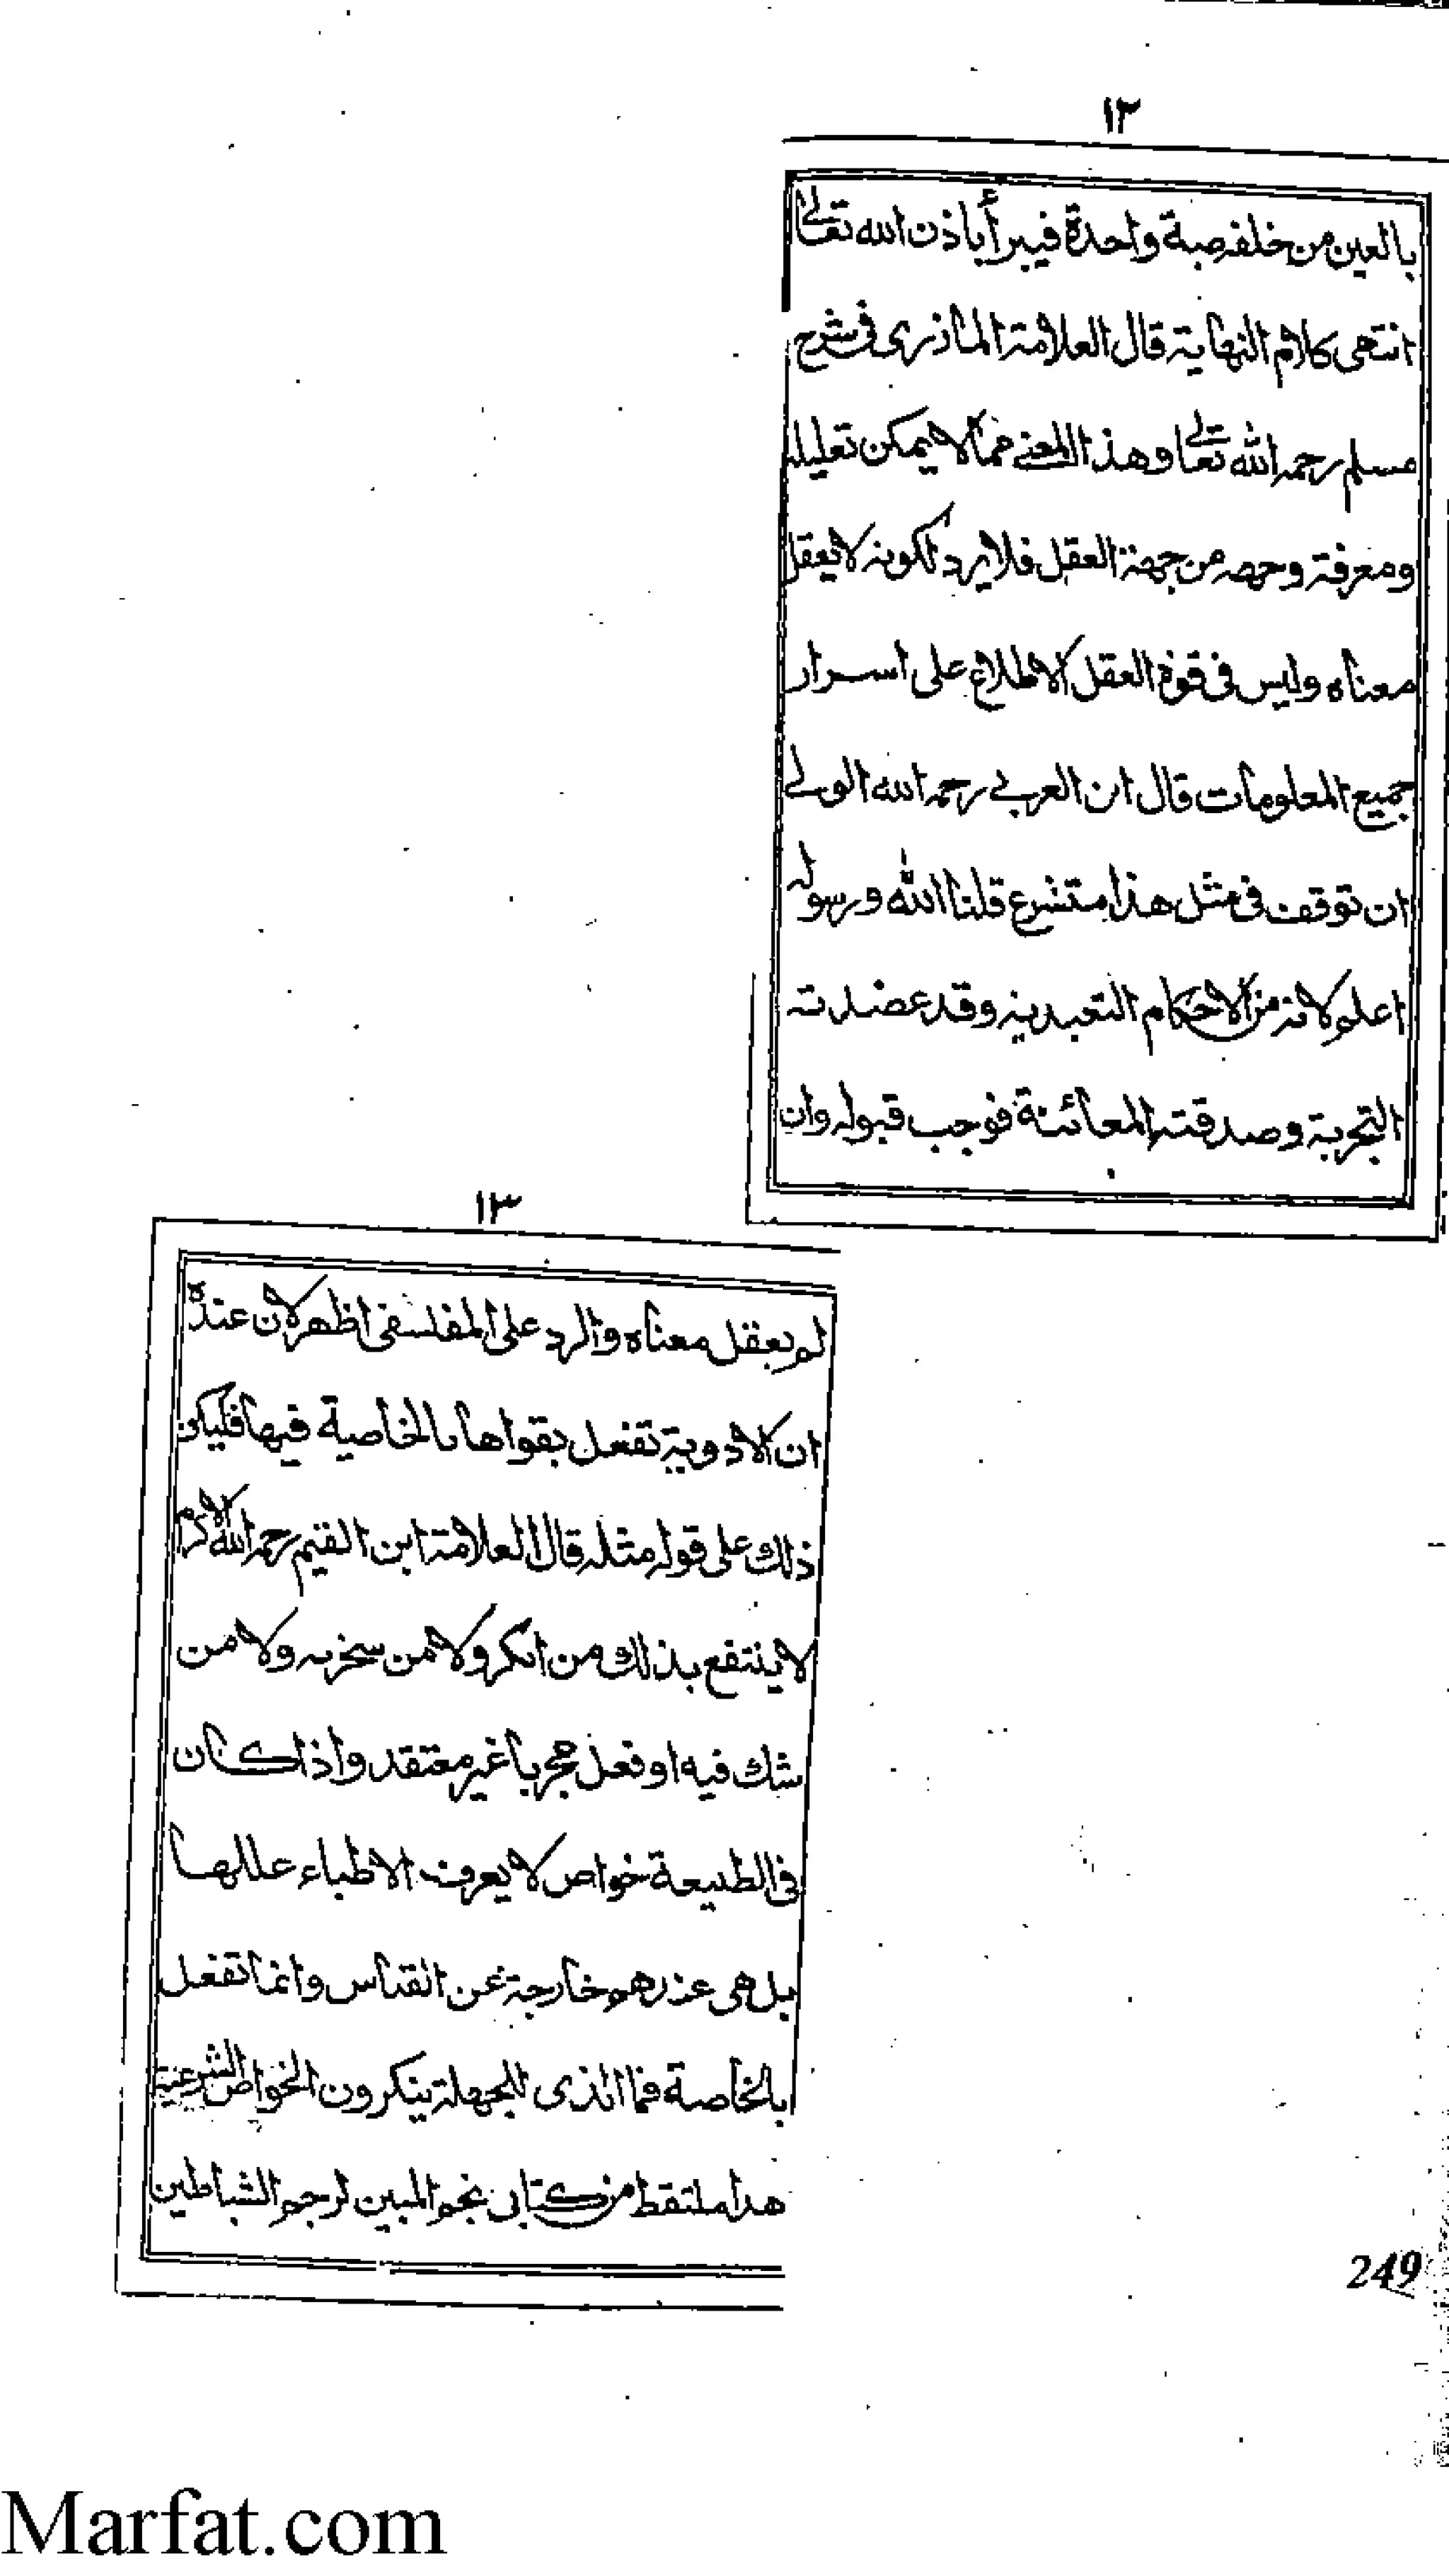 ١٢
بالعين من خلفه صبة واحدة فيبرأ باذن الله تعالى
انتهى كلام النهاية قال العلامة الماذرى فى شرح
مسلم رحمه الله تعالى وهذا المعنى مما لا يمكن تعليله
ومعرفة وجهه من جهة العقل فلا يرد لكونه لا يعقل
معناه وليس فى قوة العقل الاطلاع على اسرار
جميع المعلومات قال ان العربى رحمه الله الولى
ان توقف فى مثل هذا متشرع قلنا الله ورسوله
اعلم لانه من الاحكام التعبدية وقد عضدته
التجربة وصدقته المعائنة فوجب قبوله وان
١٣
لم يعقل معناه والرد على المفلسفى اظهر لان عنده
ان الادوية تفعل بقواها بالخاصية فيها فليكن
ذلك على قوله مثله قال العلامة ابن القيم رحمه الله الاكرم
لا ينتفع بذلك من انكر ولا من سخر به ولا من
شك فيه او فعل مجربا غير معتقد واذا كان
فى الطبيعة خواص لا يعرف الاطباء عللها
بل هى عندهم خارجة عن القياس وانما تفعل
بالخاصة فما الذى للجهلة ينكرون الخواص الشرعية
هذا ملتقط من كتاب نجم المبين لرجم الشياطين
249
Marfat.com